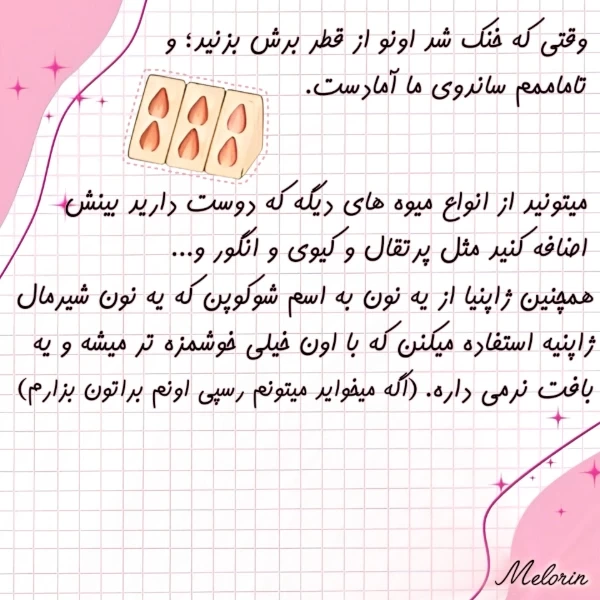 وقتی که خنک شد اونو از قطر برش بزنید؛ و
تامامممم ساندوی ما آمادست.
میتونید از انواع میوه های دیگه که دوست دارید بینش
اضافه کنید مثل پرتقال و کیوی و انگور و...
همچنین ژاپنیا از یه نون به اسم شوکوپن که یه نون شیرمال
ژاپنیه استفاده میکنن که با اون خیلی خوشمزه تر میشه و یه
بافت نرمی داره. (اگه میخواید میتونم رسپی اونم براتون بزارم)
Melorin